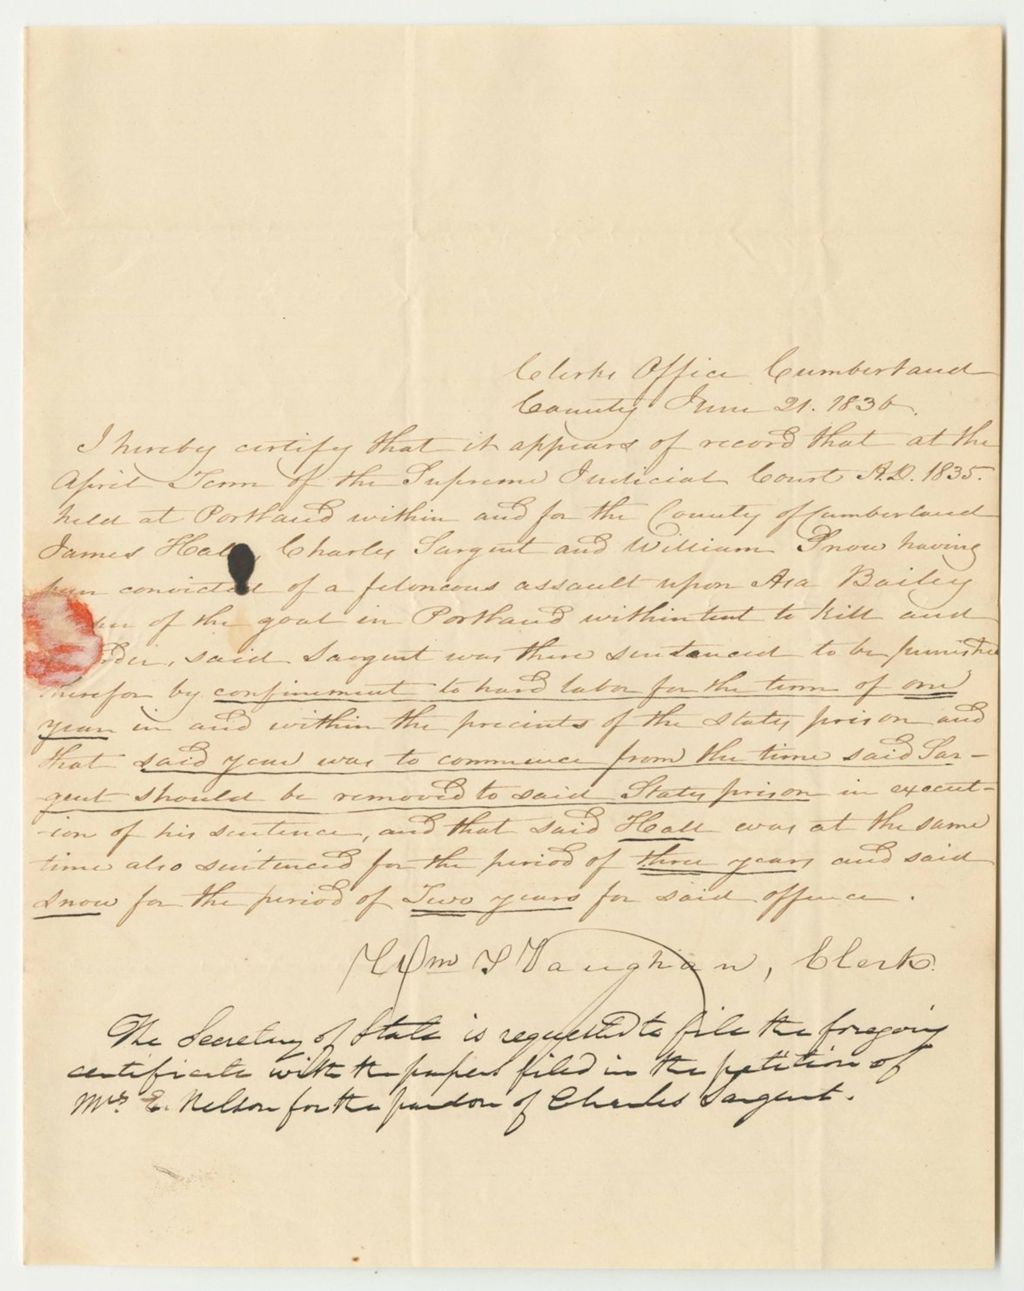 Clerks Office Cumberland
County June 21. 1836.
I hereby certify that it appears of record that at the
April Term of the Supreme Judicial Court A.D. 1835.
held at Portland within and for the County of Cumberland
James Hall, Charles Sargent and William Snow having
been convicted of a felonious assault upon Asa Bailey
of the goal in Portland with intent to kill and
said Sargent was there sentenced to be punished
therefor by confinement to hard labor for the term of one
year in and within the precincts of the States prison and
that said year was to commence from the time said Sar-
gent should be removed to said States prison in execut-
-ion of his sentence, and that said Hall was at the same
time also sentenced for the period of three years and said
Snow for the period of Two years for said offence.
Wm T Vaughan, Clerk.
The Secretary of State is requested to file the foregoing
certificate with the papers filed in the petition of
Mrs. E. Nelson for the pardon of Charles Sargent.